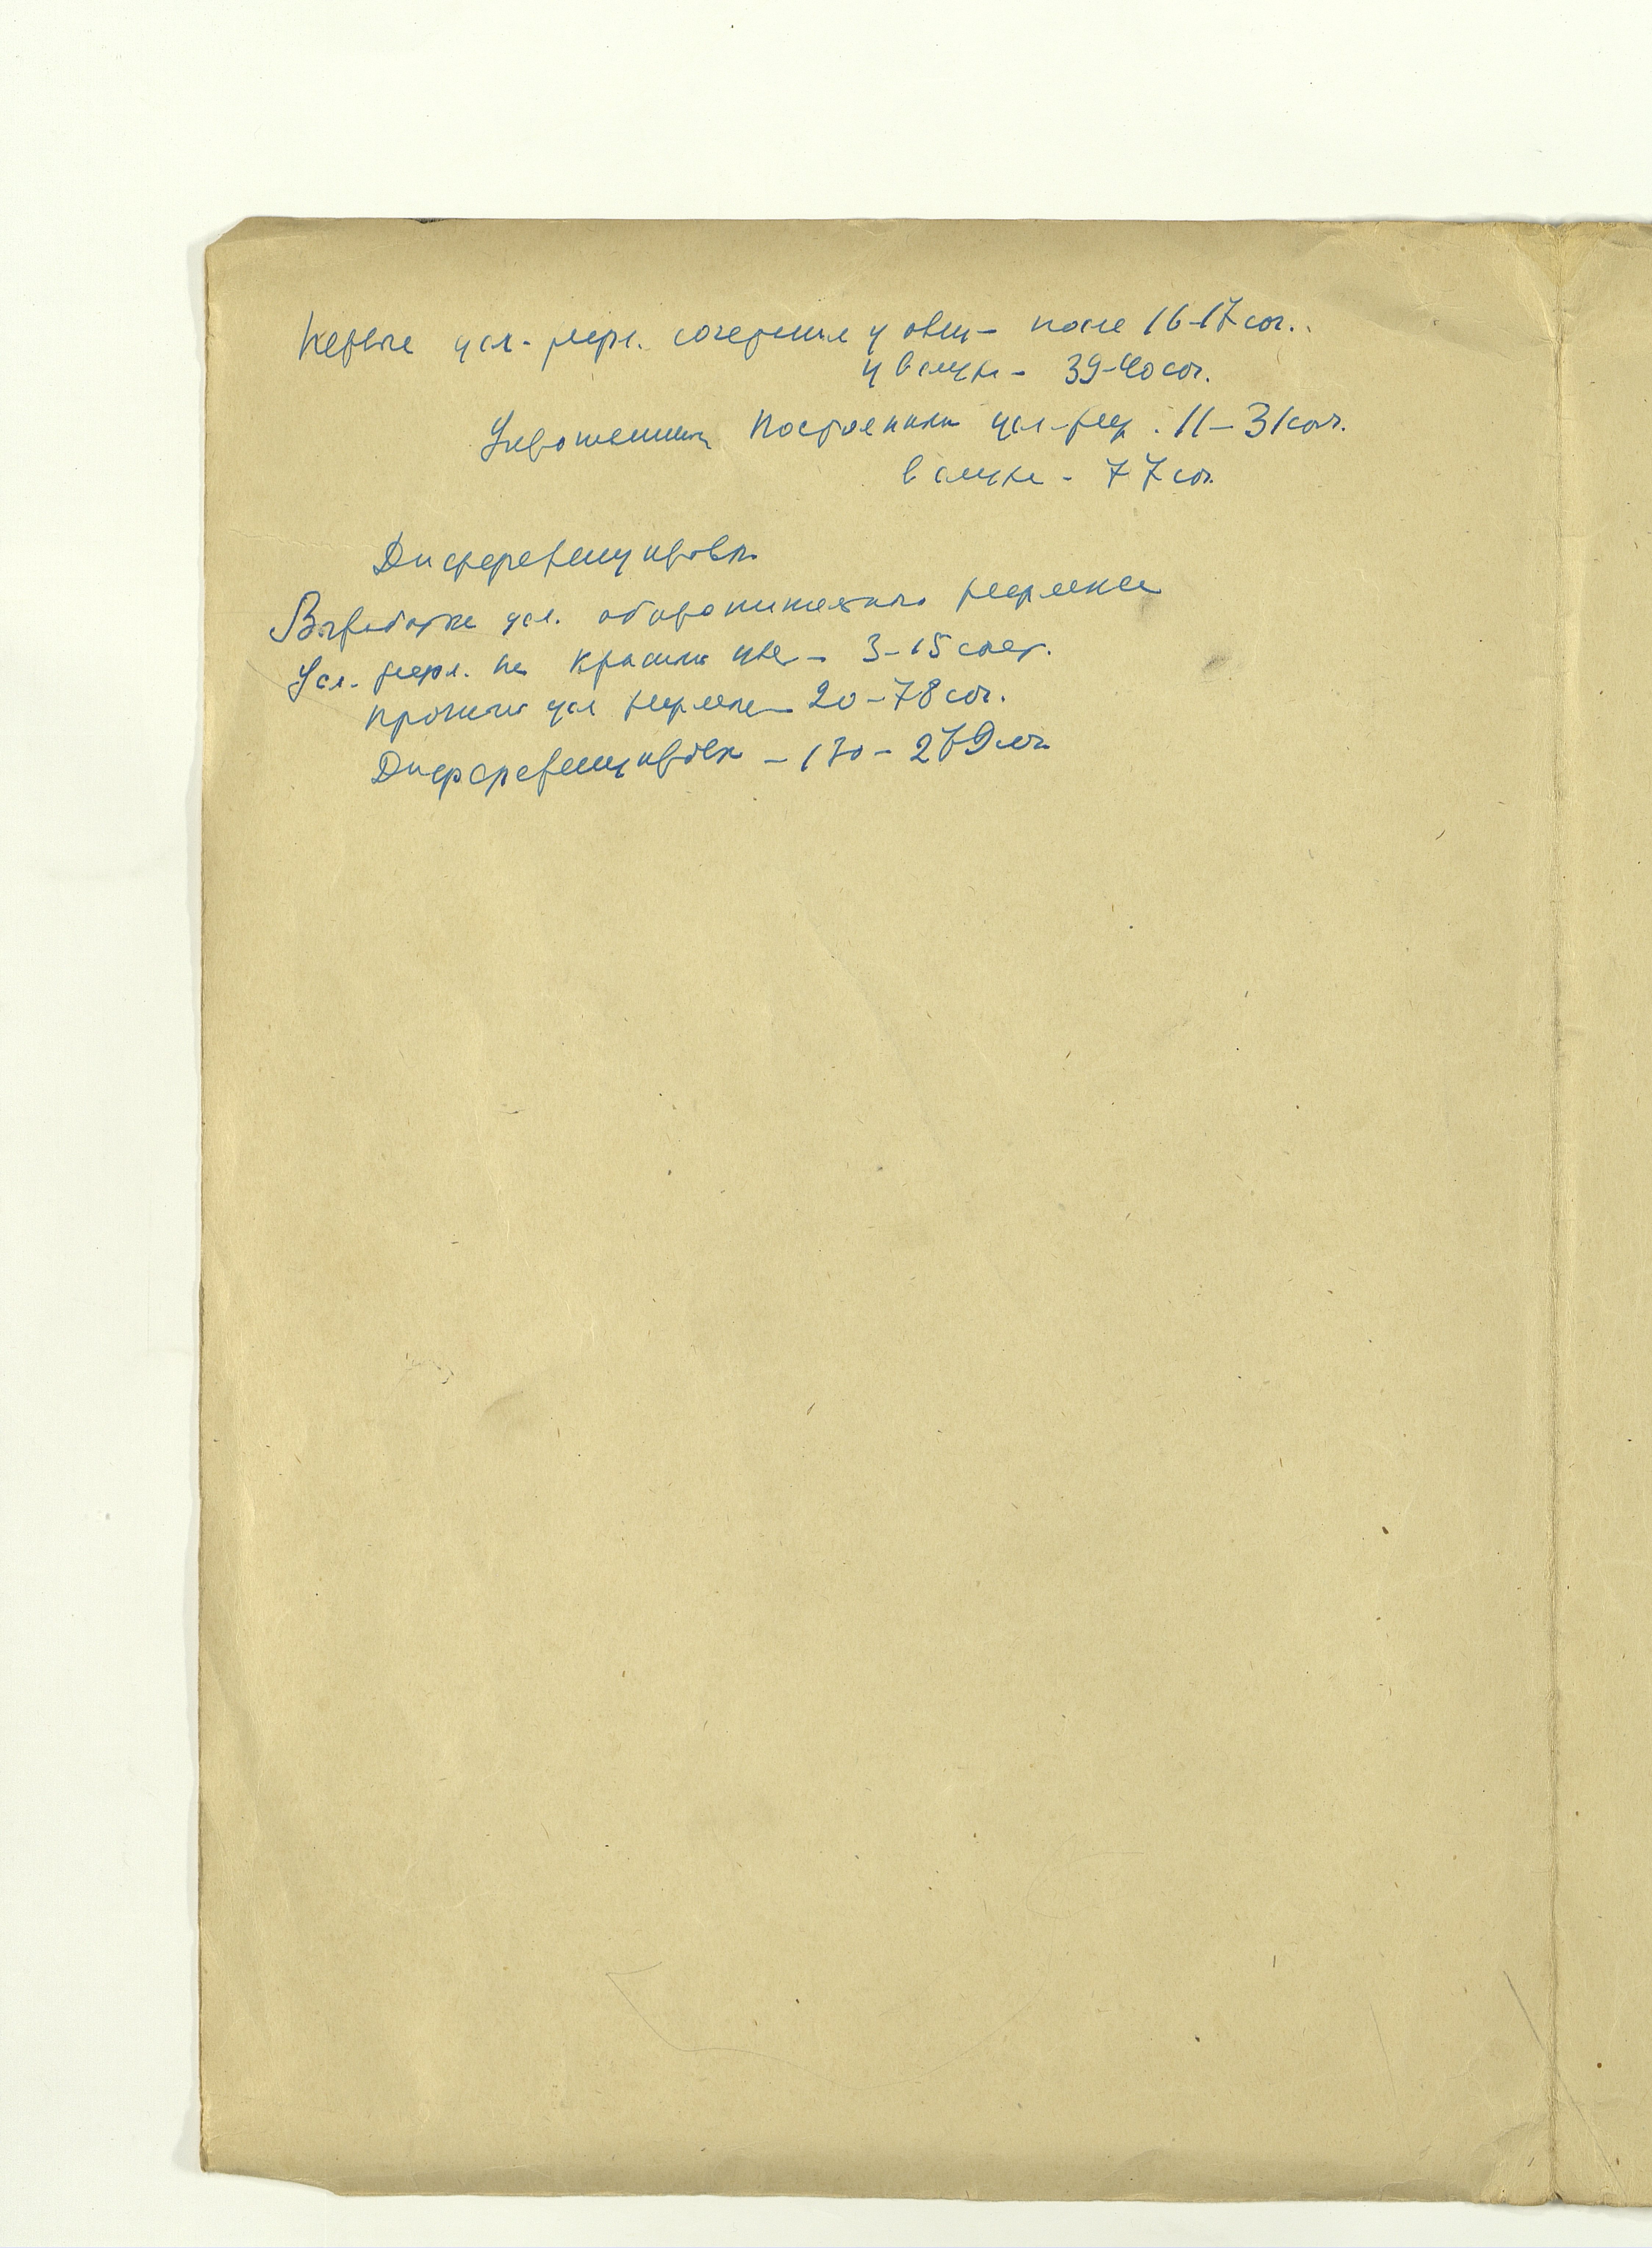 Первые усл. рефл. сочетания у овец – после 16-17 соч.
39-40 соч.
построения усл. реф. 11 – 31 соч.
– 77 соч.
Диференцировка
Выработка усл. оборонительного рефлекса
Усл. рефл. на красный цвет – 3-15 сочет.
Прочный усл рефлекс – 20-78 соч.
Диференцировка – 170 – 279 соч